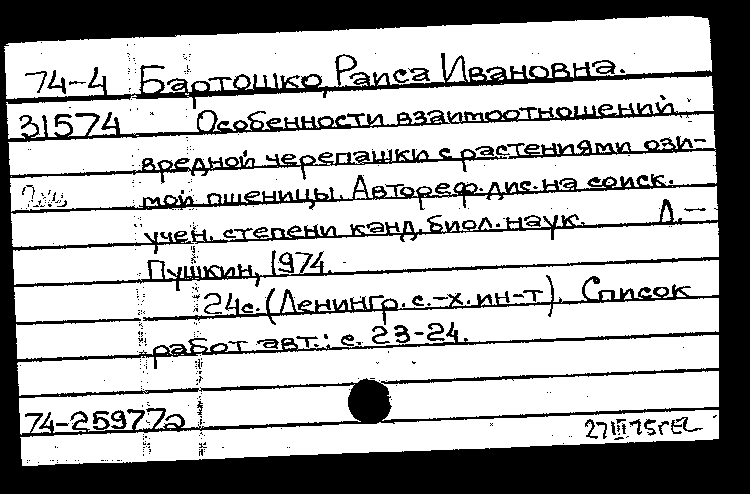 74-4 Бартошко, Раиса Ивановна.
31574 Особенности взаимоотношений
вредной черепашки с растениями ози-
мой пшеницы. Автореф. дис. на соиск.
учен. степени канд. биол. наук. Л.-
Пушкин, 1974.
24с. (Ленингр. с.-х. ин-т). Список
работ авт.: с. 23-24.
74-25977а
27 III 75